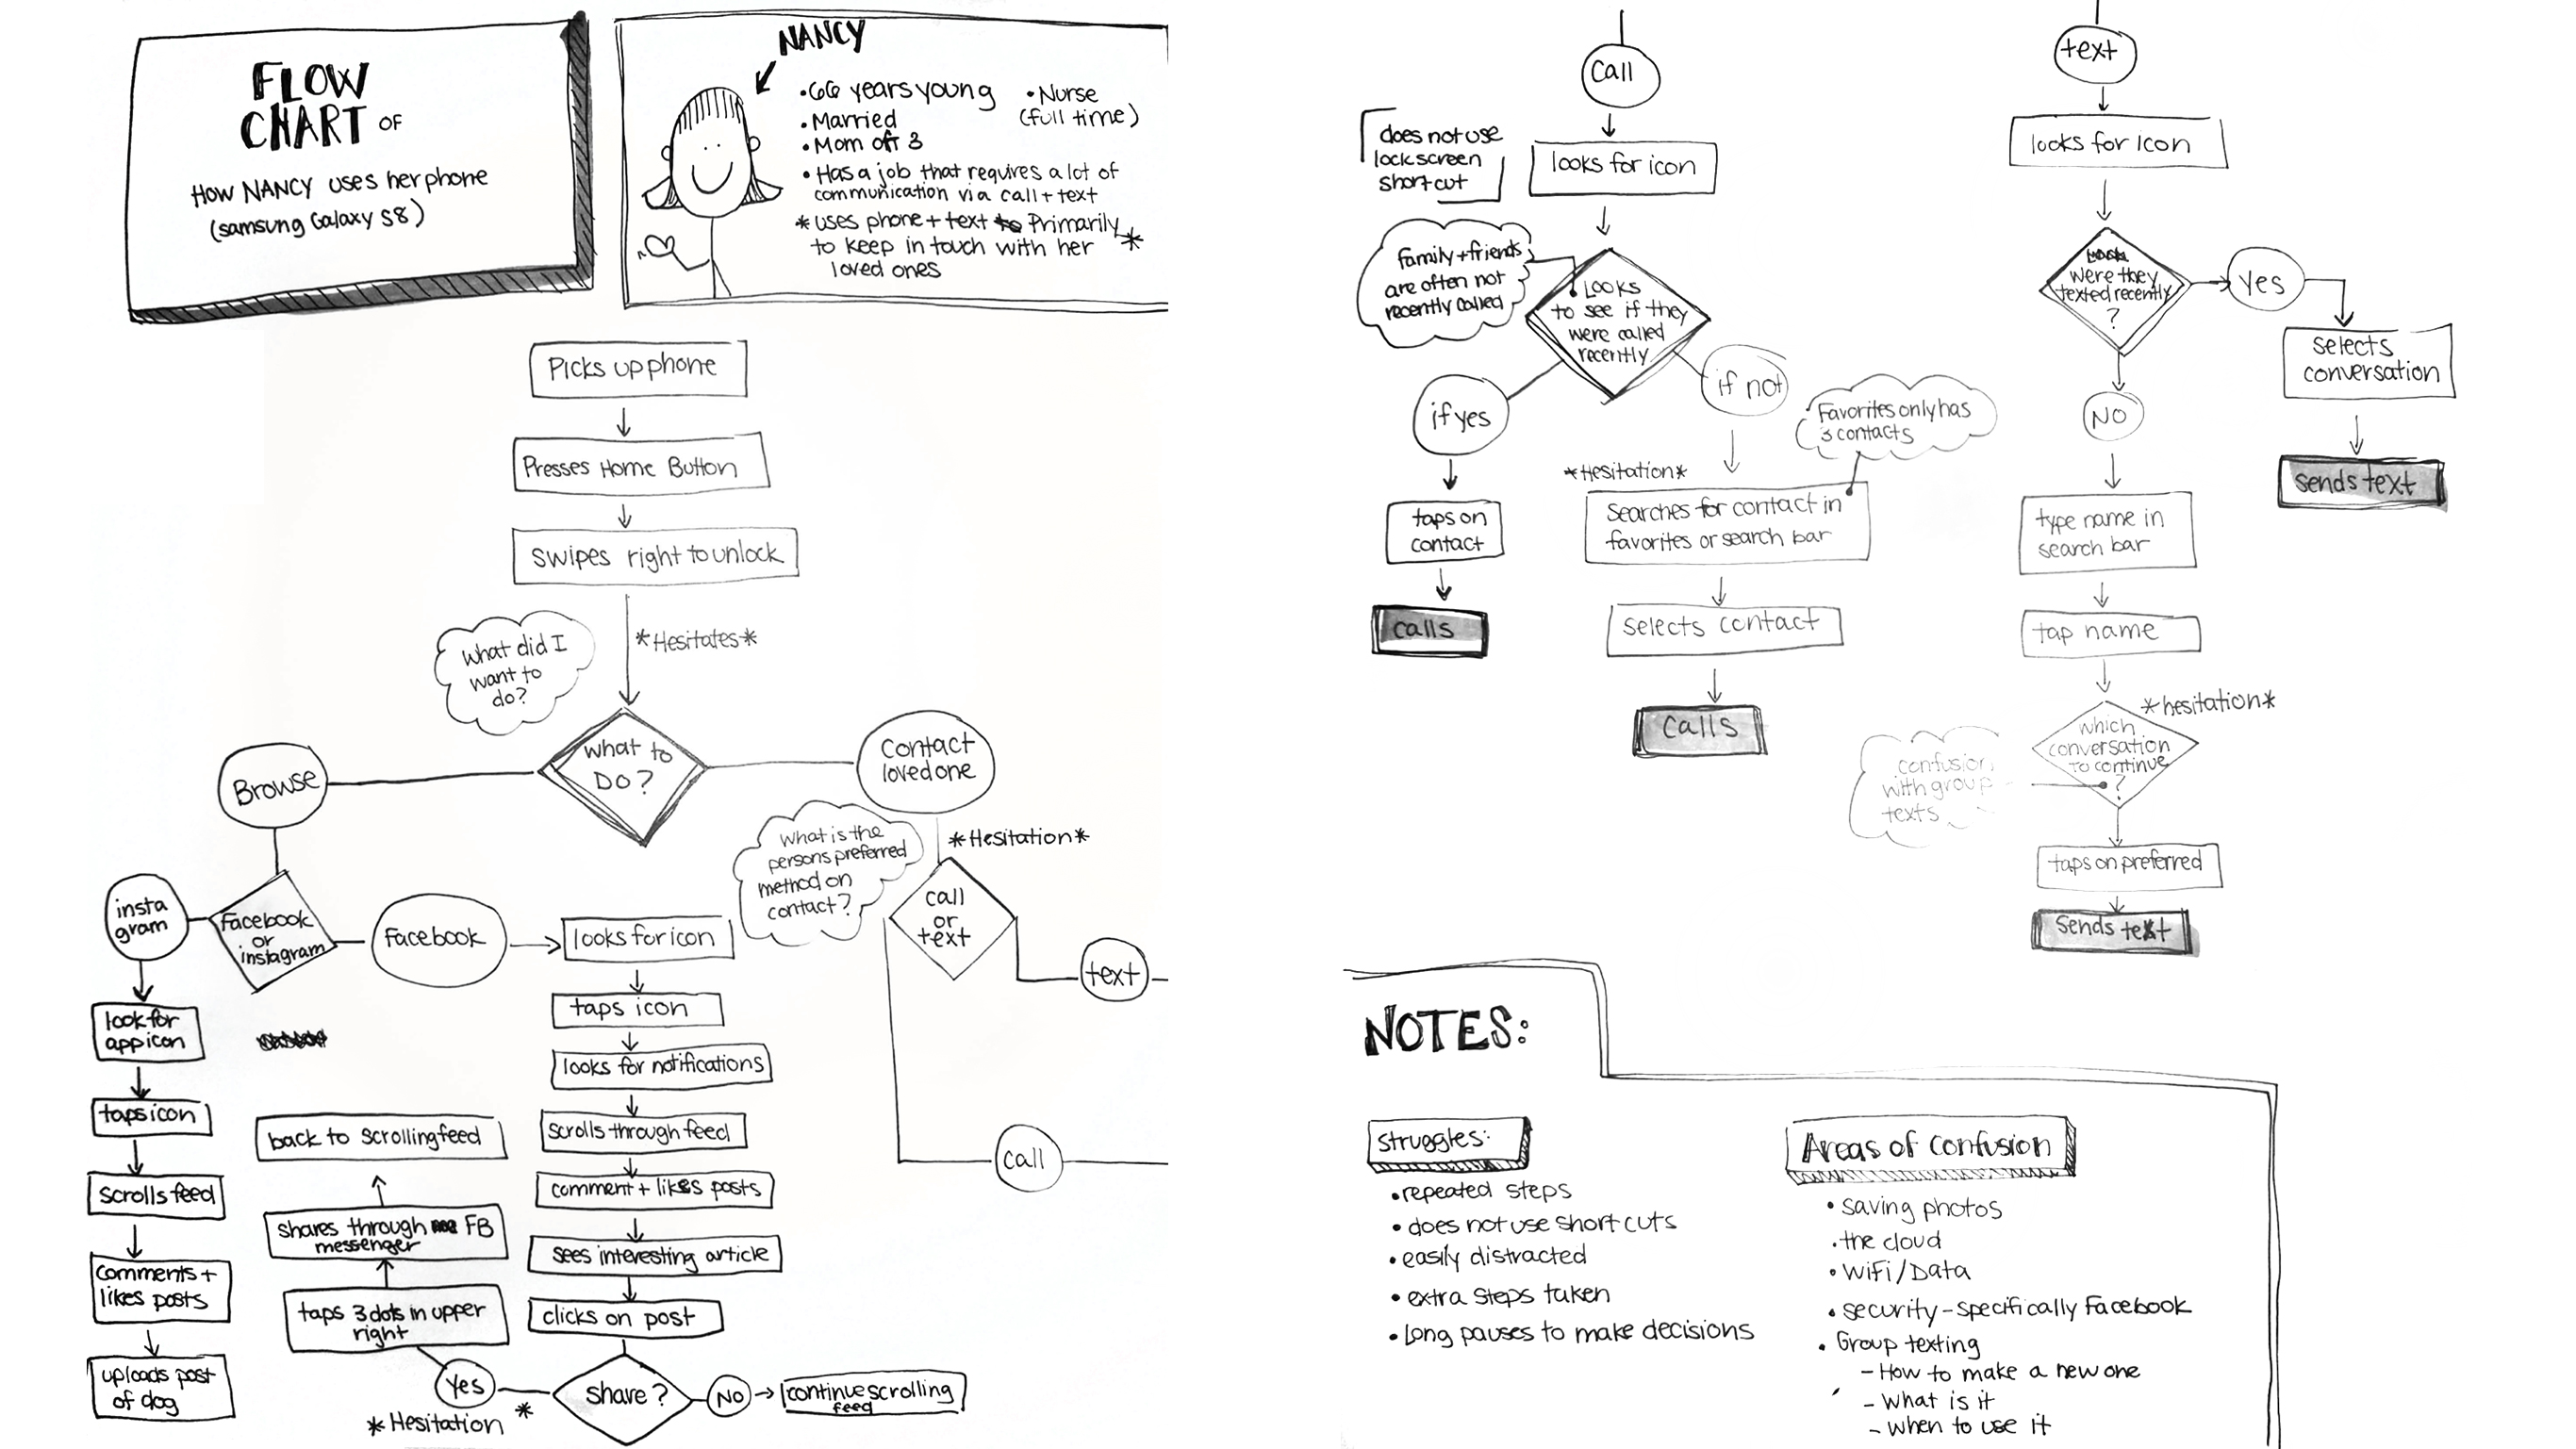 FLOW
CHART OF
HOW NANCY uses her phone
(samsung Galaxy S8)
NANCY
• 66 years young
• Married
• Mom of 3
• Nurse
(full time)
• Has a job that requires a lot of
communication via call + text
* uses phone + text Primarily *
to keep in touch with her
loved ones
Picks up phone
Presses Home Button
swipes right to unlock
*Hesitates*
what did I
want to
do?
what to
DO?
Browse
Contact
loved one
what is the
persons preferred
method on
contact?
*Hesitation*
call
or
text
text
call
insta
gram
Facebook
or
instagram
Facebook
looks for icon
taps icon
looks for notifications
scrolls through feed
comment + likes posts
sees interesting article
clicks on post
share?
NO
continue scrolling
feed
yes
*Hesitation *
taps 3 dots in upper
right
shares through FB
messenger
back to scrolling feed
look for
app icon
taps icon
scrolls feed
comments +
likes posts
uploads post
of dog
call
does not use
lock screen
short cut
looks for icon
Family + friends
are often not
recently called
Looks
to see if they
were called
recently
if yes
if not
Favorites only has
3 contacts
taps on
contact
calls
*Hesitation*
searches for contact in
favorites or search bar
selects contact
calls
text
looks for icon
were they
texted recently
?
yes
selects
conversation
sends text
NO
type name in
search bar
tap name
*hesitation*
which
conversation
to continue
?
confusion
with group
texts
taps on preferred
sends text
NOTES:
struggles:
• repeated steps
• does not use short cuts
• easily distracted
• extra steps taken
• Long pauses to make decisions
Areas of confusion
• saving photos
• the cloud
• WiFi/Data
• security - specifically Facebook
• Group texting
- How to make a new one
- What is it
- when to use it